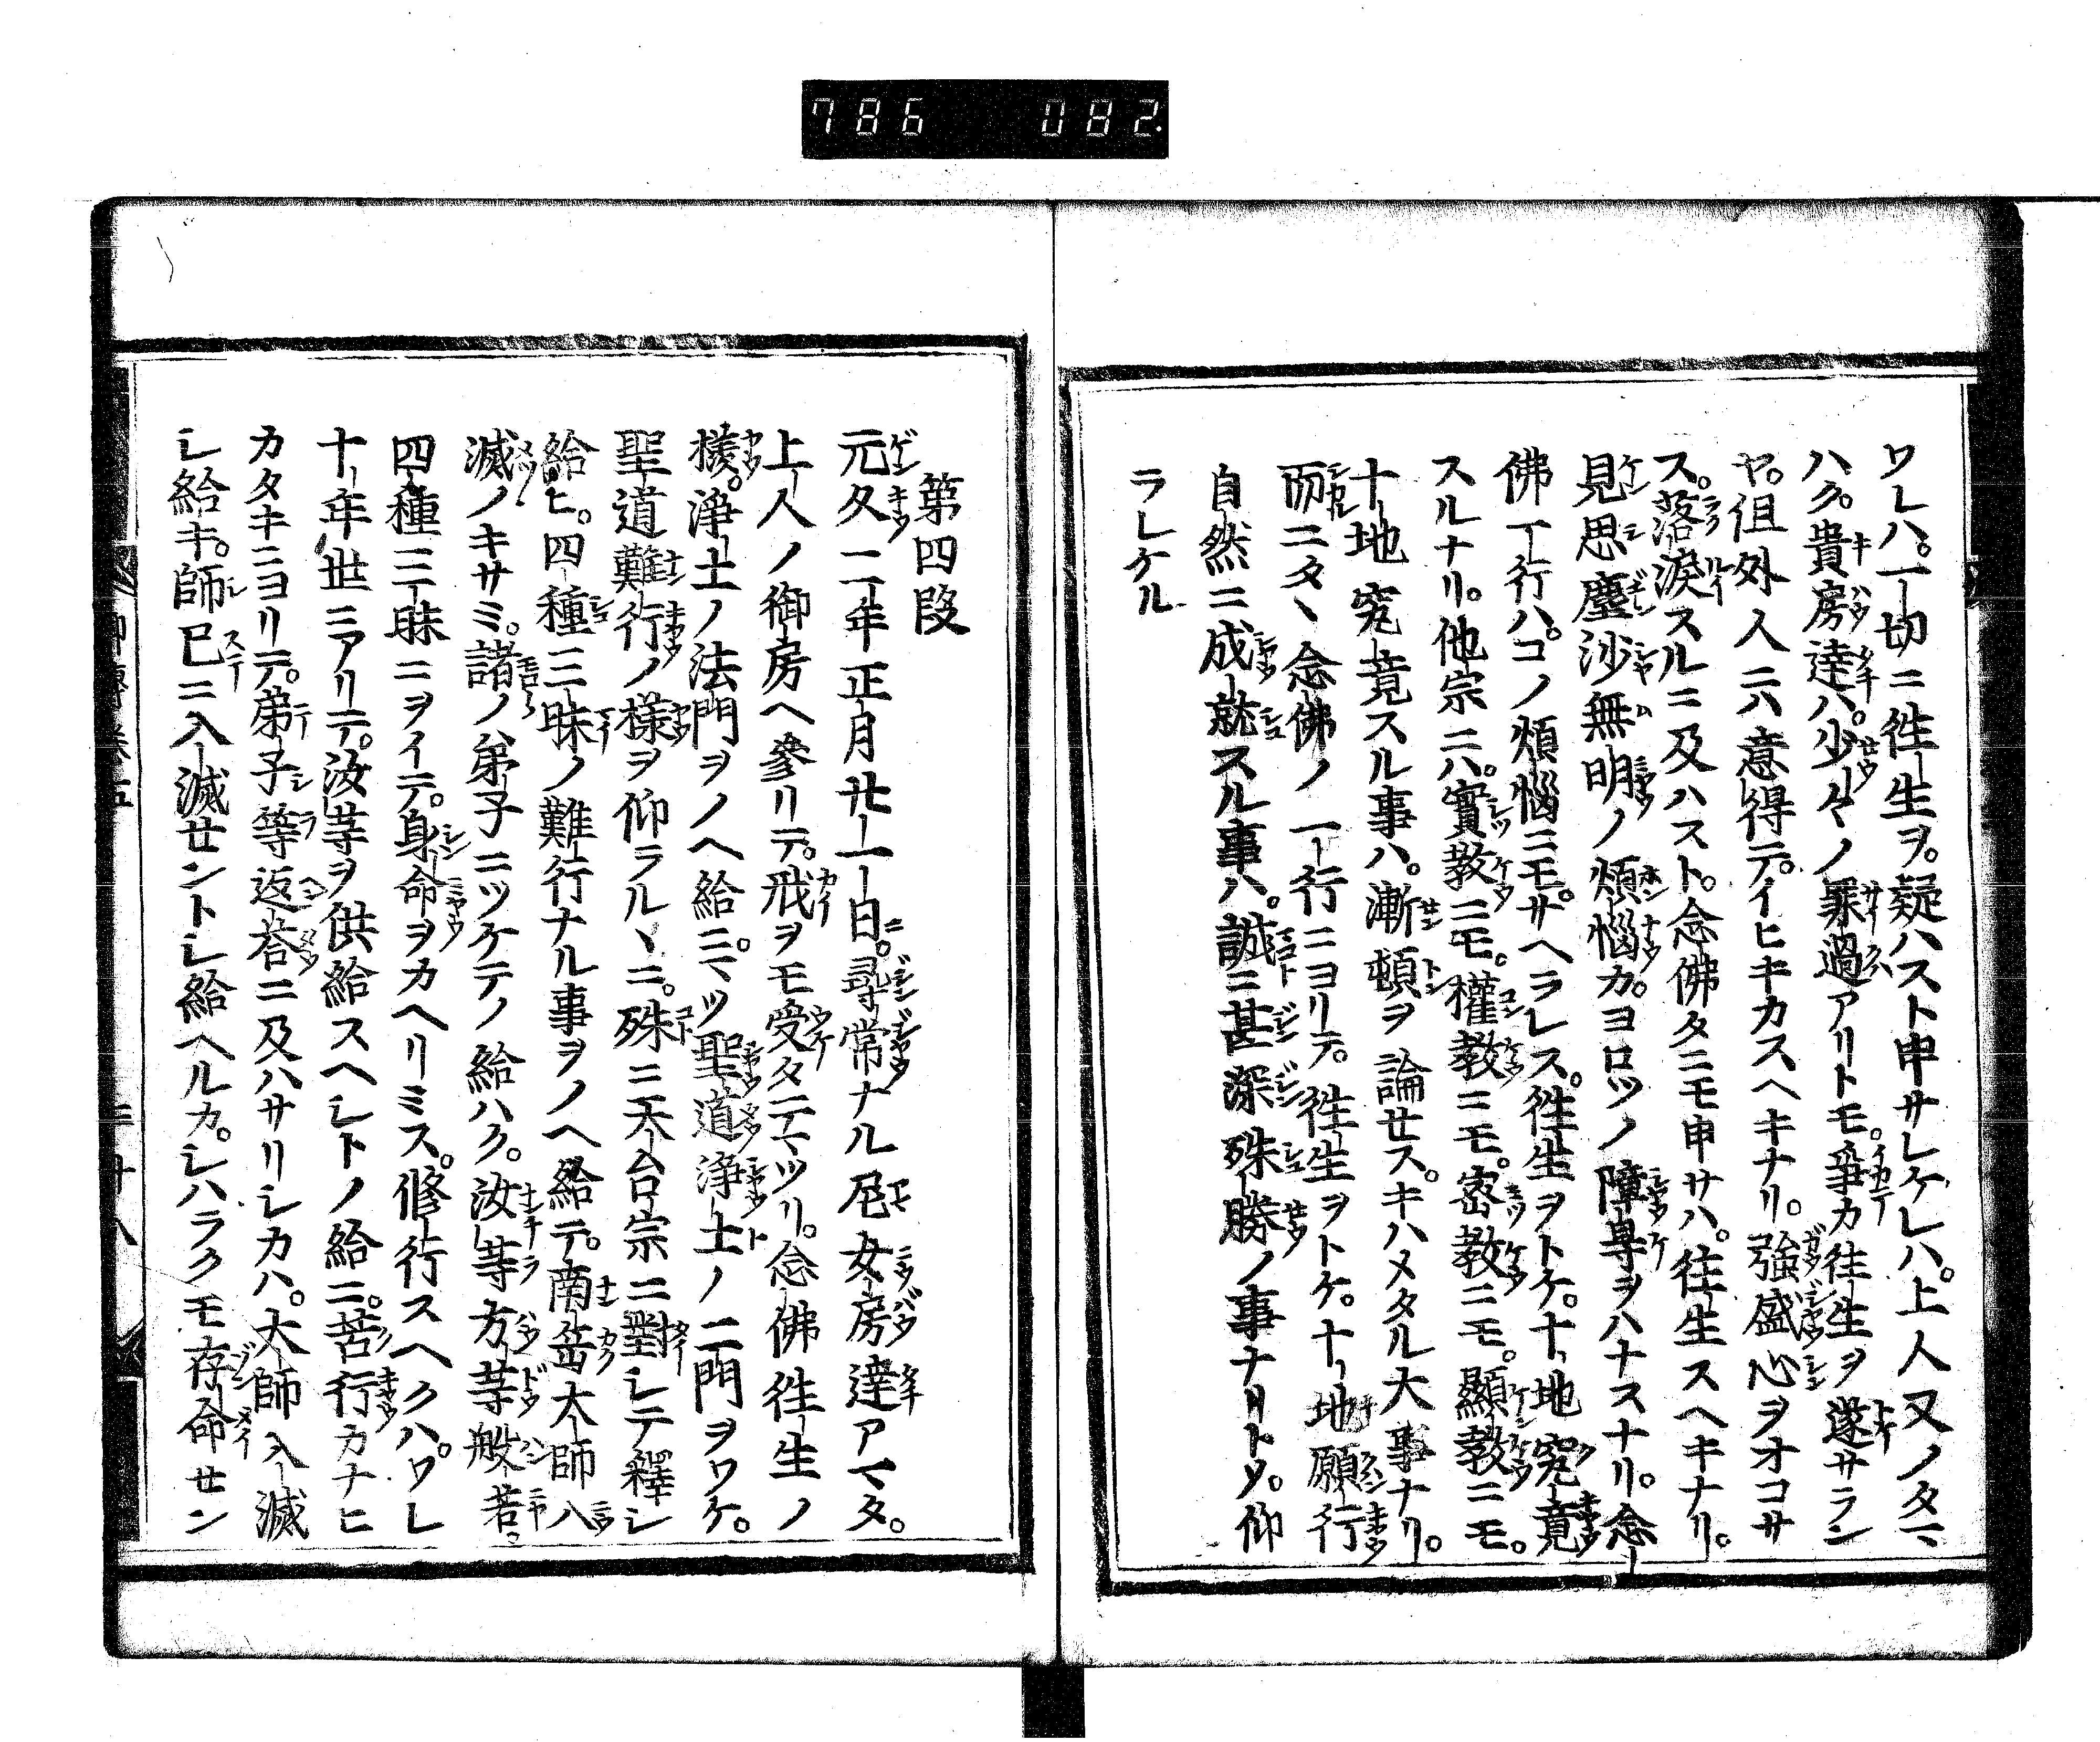 786 082
ワレハ。一切ニ往生ヲ。疑ハスト申サレケレハ。上人又ノタマ
ハク。貴房達ハ。少々ノ罪過アリトモ。爭カ往生ヲ遂サラン
ヤ。但外人ニハ意得テ。イヒキカスヘキナリ。強盛心ヲオコサ
ス。落涙スルニ及ハスト。念佛タニモ申サハ。往生スヘキナリ。
見思塵沙無明ノ煩惱カ。ヨロツノ障㝵ヲハナスナリ。念
佛一行ハ。コノ煩惱ニモ。サヘラレス。往生ヲトケ。十地究竟
スルナリ。他宗ニハ。實教ニモ。權教ニモ。密教ニモ。顯教ニモ。
十地究竟スル事ハ。漸頓ヲ論セス。キハメタル大事ナリ。
而ニタヽ念佛ノ一行ニヨリテ。往生ヲトケ。十地願行
自然ニ成就スル事ハ。誠ニ甚深殊勝ノ事ナリトソ。仰
ラレケル
第四段
元久二年正月廿一日。尋常ナル尼女房達アマタ。
上人ノ御房ヘ參リテ。戒ヲモ受タテマツリ。念佛往生ノ
樣。淨土ノ法門ヲノヘ給ニ。マツ聖道淨土ノ二門ヲワケ。
聖道難行ノ樣ヲ仰ラルヽニ。殊ニ天台宗ニ對シテ釋シ
給ヒ。四種三昧ノ難行ナル事ヲノヘ給テ。南岳大師入
滅ノキサミ。諸ノ弟子ニツケテノ給ハク。汝等方等般若。
四種三昧ニヲイテ。身命ヲカヘリミス。修行スヘクハ。ワレ
十年世ニアリテ。汝等ヲ供給スヘシトノ給ニ。苦行カナヒ
カタキニヨリテ。弟子等返荅ニ及ハサリシカハ。大師入滅
シ給キ。師已ニ入滅セントシ給ヘルカ。シハラクモ存命セン